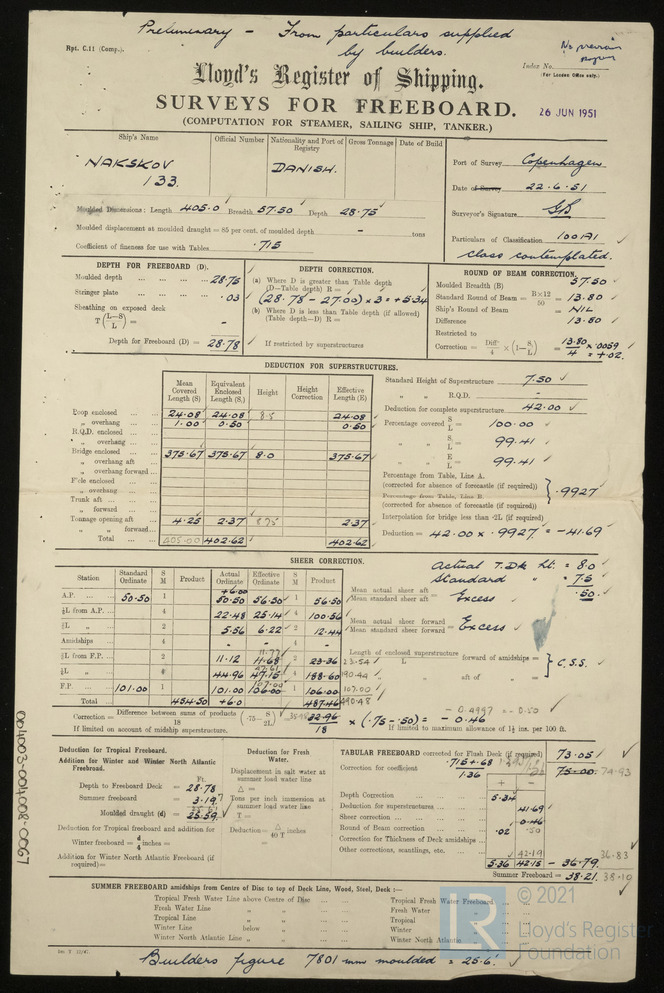 Preliminary - From particulars supplied
by builders.
Rpt. C.11 (Comp.).
No previous
Index No.
(For London Office only.)
Lloyd's Register of Shipping.
SURVEYS FOR FREEBOARD.
26 JUN 1951
(COMPUTATION FOR STEAMER, SAILING SHIP, TANKER.)
Ship's Name Official Number Nationality and Port of Registry Gross Tonnage Date of Build
NAKSKOV
133.
DANISH.
Port of Survey Copenhagen
Date of Survey 22.6.51
Surveyor's Signature
Particulars of Classification 100A1
class contemplated.
Moulded Dimensions: Length 405.0 Breadth 57.50 Depth 28.75
Moulded displacement at moulded draught = 85 per cent. of moulded depth - tons
Coefficient of fineness for use with Tables .715
DEPTH FOR FREEBOARD (D).
Moulded depth 28.75
Stringer plate .03
Sheathing on exposed deck
T(L-S/L) = -
Depth for Freeboard (D) = 28.78
DEPTH CORRECTION.
(a) Where D is greater than Table depth
(D-Table depth) R =
(28.78 - 27.00) x 3 = +5.34
(b) Where D is less than Table depth (if allowed)
(Table depth-D) R =
If restricted by superstructures
ROUND OF BEAM CORRECTION.
Moulded Breadth (B) 57.50
Standard Round of Beam = B×12/50 = 13.80
Ship's Round of Beam = NIL
Difference 13.80
Restricted to
Correction = Diff/4 × (1-S/L) = 13.80/4 x .0059 = +.02
DEDUCTION FOR SUPERSTRUCTURES.
Mean Covered Length (S) Equivalent Enclosed Length (S₁) Height Height Correction Effective Length (E)
Poop enclosed 24.08 24.08 8.5 24.08
„ overhang 1.00 0.50 0.50
R.Q.D. enclosed
„ overhang
Bridge enclosed 375.67 375.67 8.0 375.67
„ overhang aft
„ overhang forward
F'cle enclosed
„ overhang
Trunk aft
„ forward
Tonnage opening aft 4.25 2.37 8.75 2.37
„ „ forward
Total 405.00 402.62 402.62
Standard Height of Superstructure 7.50
„ „ R.Q.D. -
Deduction for complete superstructure 42.00
Percentage covered S/L = 100.00
„ „ S₁/L = 99.41
„ „ E/L = 99.41
Percentage from Table, Line A.
(corrected for absence of forecastle (if required))
Percentage from Table, Line B.
(corrected for absence of forecastle (if required))
.9927
Interpolation for bridge less than .2L (if required)
Deduction = 42.00 x .9927 = -41.69
SHEER CORRECTION.
Station Standard Ordinate S M Product Actual Ordinate Effective Ordinate S M Product
+6.00
A.P. 50.50 1 50.50 56.50 1 56.50
⅙L from A.P. 4 22.48 25.14 4 100.56
⅓L „ 2 5.56 6.22 2 12.44
Amidships 4 - - 4 -
11.77
⅓L from F.P. 2 11.12 11.68 2 23.36 23.54
47.61
⅙L „ 4 44.96 47.15 4 188.60 190.44
107.00
F.P. 101.00 1 101.00 106.00 1 106.00 107.00
Total 454.50 +6.0 487.46 490.48
Actual T.Dk Ht. = 8.0
Standard „ = 7.5
.50
Mean actual sheer aft
Mean standard sheer aft = Excess
Mean actual sheer forward
Mean standard sheer forward = Excess
Length of enclosed superstructure forward of amidships =
L
„ aft of „ =
C.S.S.
Correction = Difference between sums of products/18 (.75 - S/2L) = 35.98 32.96/18 x (.75-.50) = -0.46
-0.4997 = -0.50
If limited on account of midship superstructure.
If limited to maximum allowance of 1½ ins. per 100 ft.
Deduction for Tropical Freeboard.
Addition for Winter and Winter North Atlantic Freeboard.
Ft.
Depth to Freeboard Deck = 28.78
Summer freeboard = 3.19
Moulded draught (d) = 25.59
Deduction for Tropical freeboard and addition for
Winter freeboard = d/4 inches =
Addition for Winter North Atlantic Freeboard (if required) =
Deduction for Fresh Water.
Displacement in salt water at summer load water line
Δ =
Tons per inch immersion at summer load water line
T =
Deduction = Δ/40 T inches
=
TABULAR FREEBOARD corrected for Flush Deck (if required) 73.05
Correction for coefficient .715+.68/1.36 75.00 74.93
+ -
Depth Correction 5.34
Deduction for superstructures 41.69
Sheer correction 0.46
Round of Beam correction .02 .50
Correction for Thickness of Deck amidships
Other corrections, scantlings, etc. 42.19
36.83
5.36 42.15 - 36.79
Summer Freeboard = 38.21 38.10
SUMMER FREEBOARD amidships from Centre of Disc to top of Deck Line, Wood, Steel, Deck :—
Tropical Fresh Water Line above Centre of Disc Tropical Fresh Water Freeboard
Fresh Water Line „ „ Fresh Water „
Tropical Line „ „ Tropical „
Winter Line below „ Winter „
Winter North Atlantic Line „ „ Winter North Atlantic „
Builders figure 7801 mm moulded = 25.6'
004003-004008-0067
LR
© 2021
Lloyd's Register
Foundation